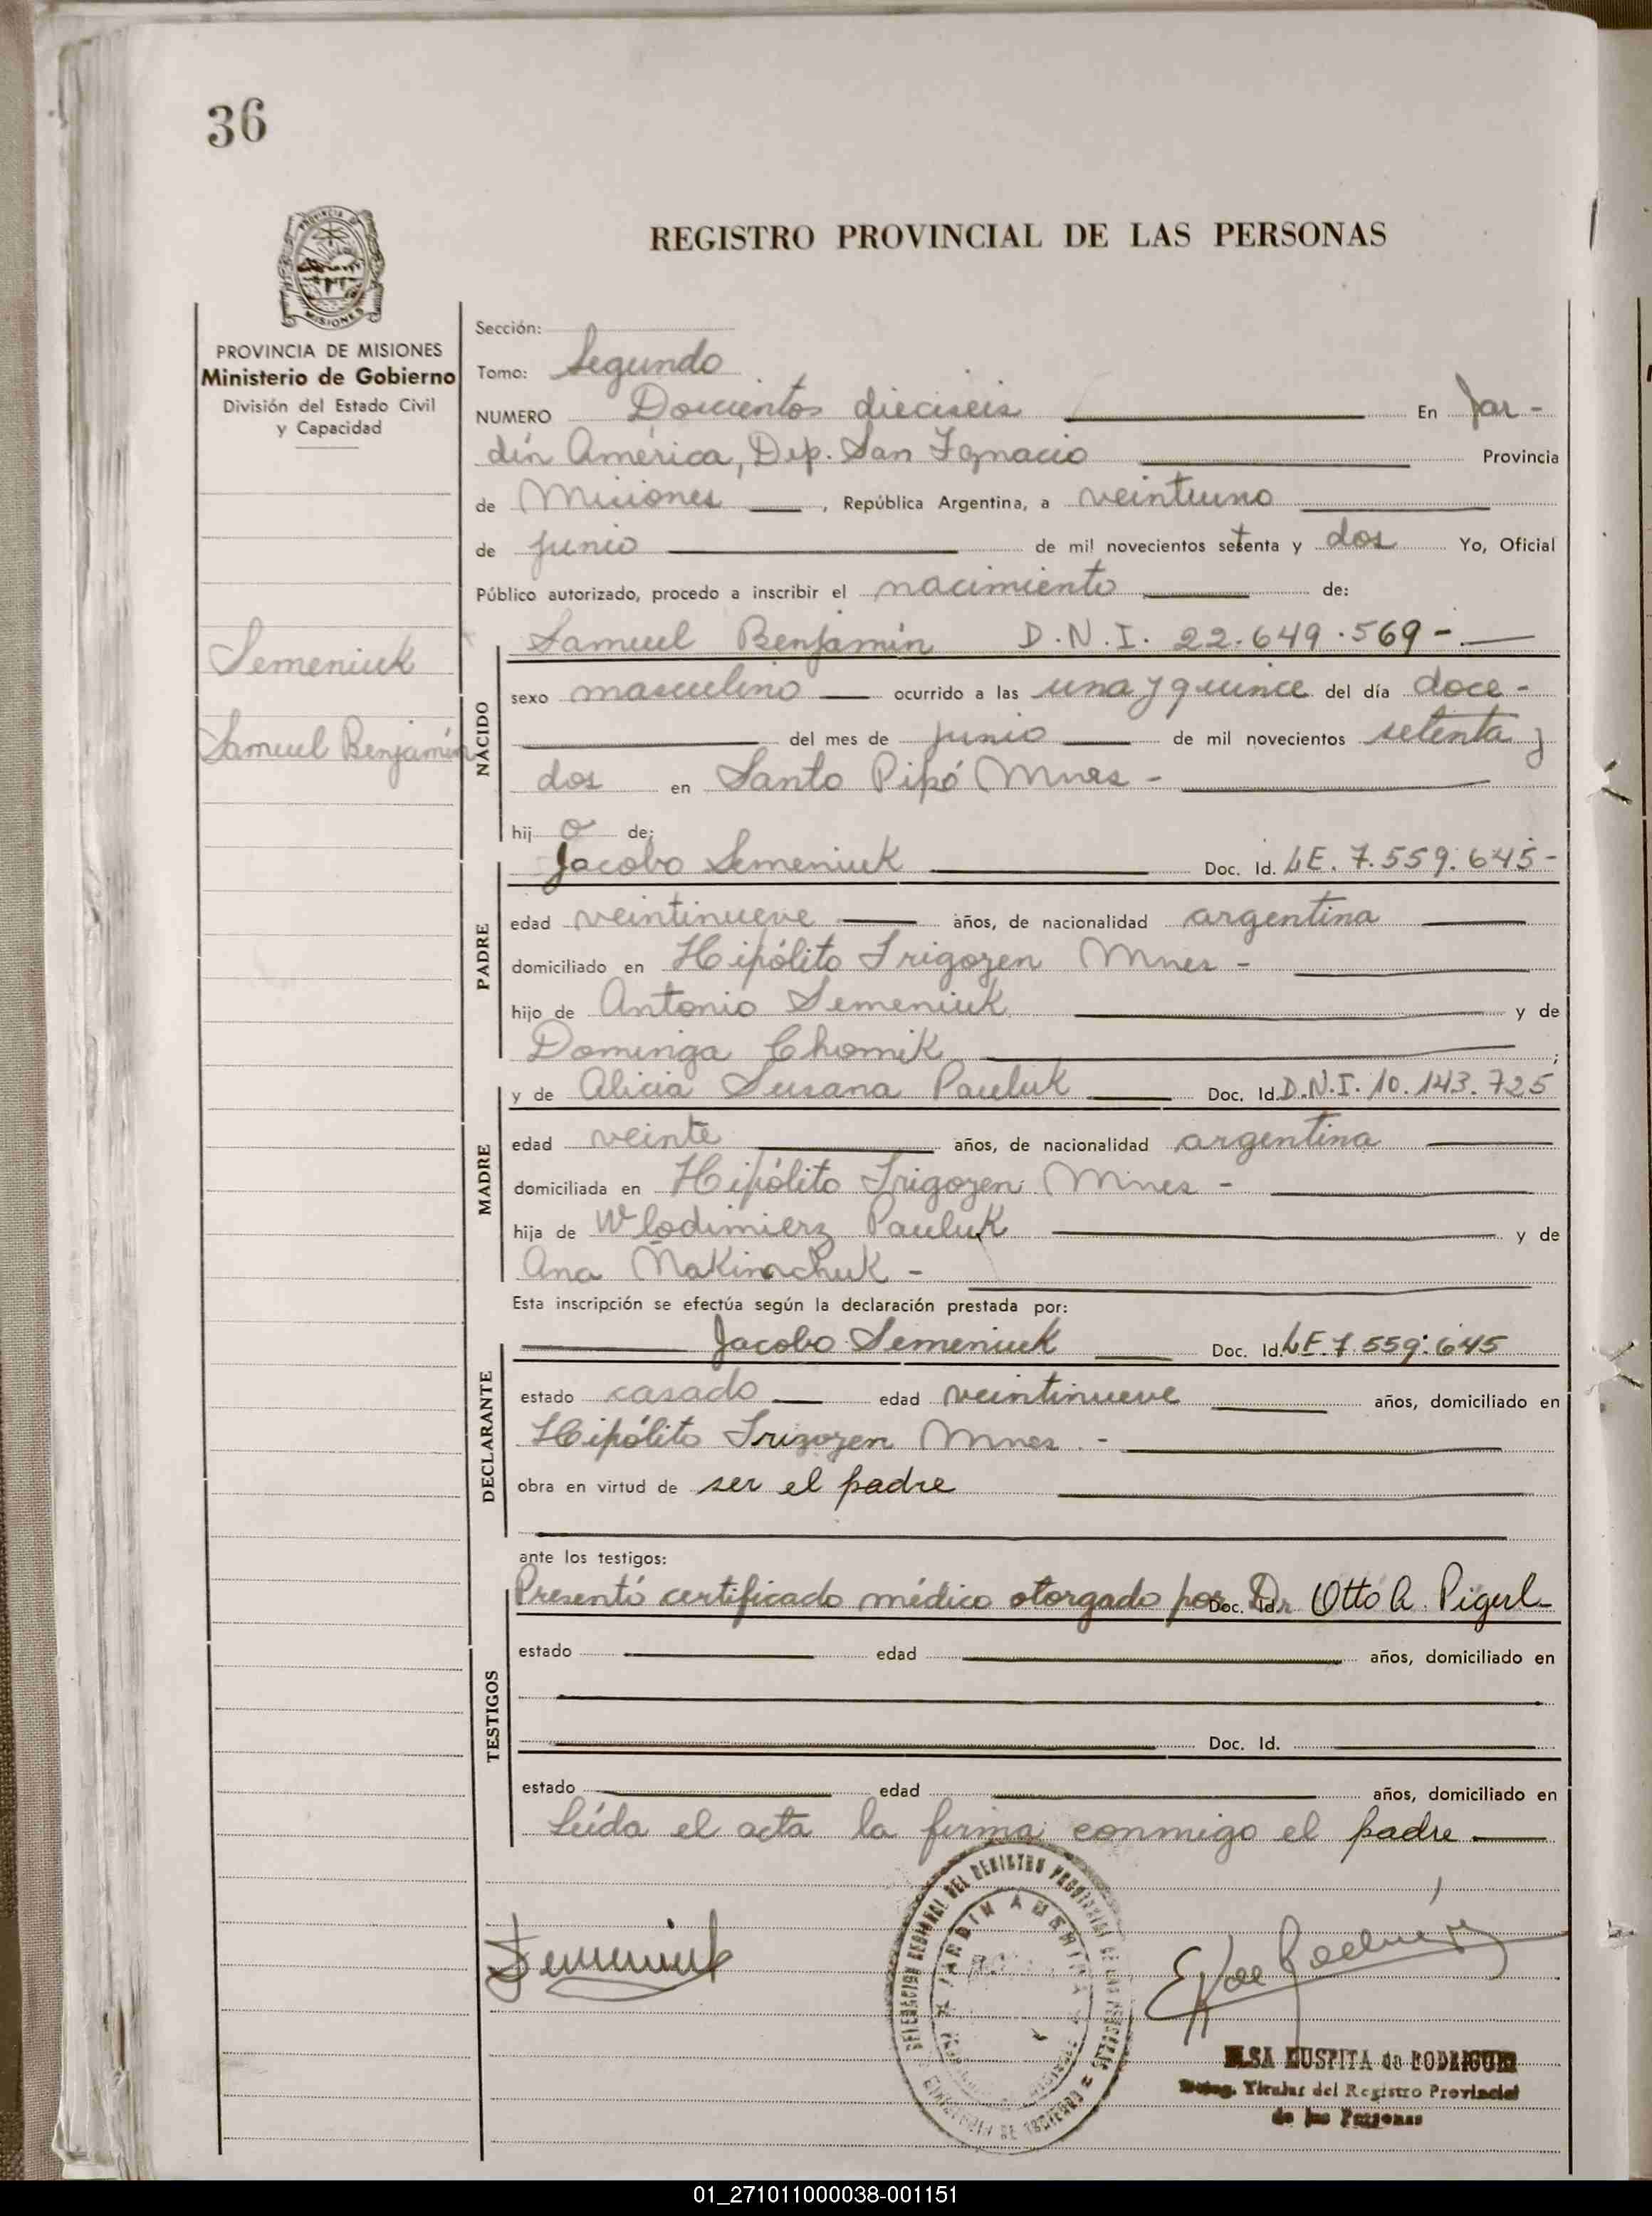 36
PROVINCIA DE
MISIONES
REGISTRO PROVINCIAL DE LAS PERSONAS
PROVINCIA DE MISIONES
Ministerio de Gobierno
División del Estado Civil
y Capacidad
Semeniuk
Samuel Benjamín
Sección:
Tomo: Segundo
NUMERO Doscientos dieciseis En Jar-
dín América, Dep. San Ignacio Provincia
de Misiones, República Argentina, a veintiuno
de junio de mil novecientos setenta y dos Yo, Oficial
Público autorizado, procedo a inscribir el nacimiento de:
NACIDO
Samuel Benjamín D.N.I. 22.649.569-
sexo masculino ocurrido a las una y quince del día doce-
del mes de junio de mil novecientos setenta y
dos en Santo Pipó Mnes-
hijo de:
PADRE
Jacobo Semeniuk Doc. Id. LE. 7.559.645-
edad veintinueve años, de nacionalidad argentina
domiciliado en Hipólito Irigoyen Mnes-
hijo de Antonio Semeniuk y de
Dominga Chomik;
MADRE
y de Alicia Susana Pauluk Doc. Id. D.N.I. 10.143.725
edad veinte años, de nacionalidad argentina
domiciliada en Hipólito Irigoyen Mnes-
hija de Wlodimierz Pauluk y de
Ana Makimchuk-
Esta inscripción se efectúa según la declaración prestada por:
DECLARANTE
Jacobo Semeniuk Doc. Id. LE.7.559.645
estado casado edad veintinueve años, domiciliado en
Hipólito Irigoyen Mnes.-
obra en virtud de ser el padre
ante los testigos:
TESTIGOS
Presentó certificado médico otorgado por Doc. Id. Dr Otto A. Pigul-
estado edad años, domiciliado en
Doc. Id.
estado edad años, domiciliado en
Leída el acta la firma conmigo el padre
Semeniuk
DELEGACION REGIONAL DEL REGISTRO PROVINCIAL DE LAS PERSONAS
JARDIN AMERICA
MINISTERIO DE GOBIERNO
ELSA de RODRIGUEZ
Deleg. Titular del Registro Provincial
de las Personas
01_271011000038-001151